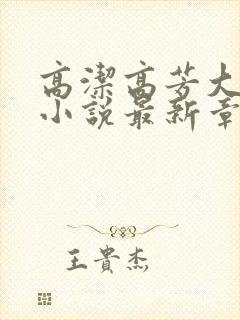 高潔高芳大
小說最新章
王貴杰